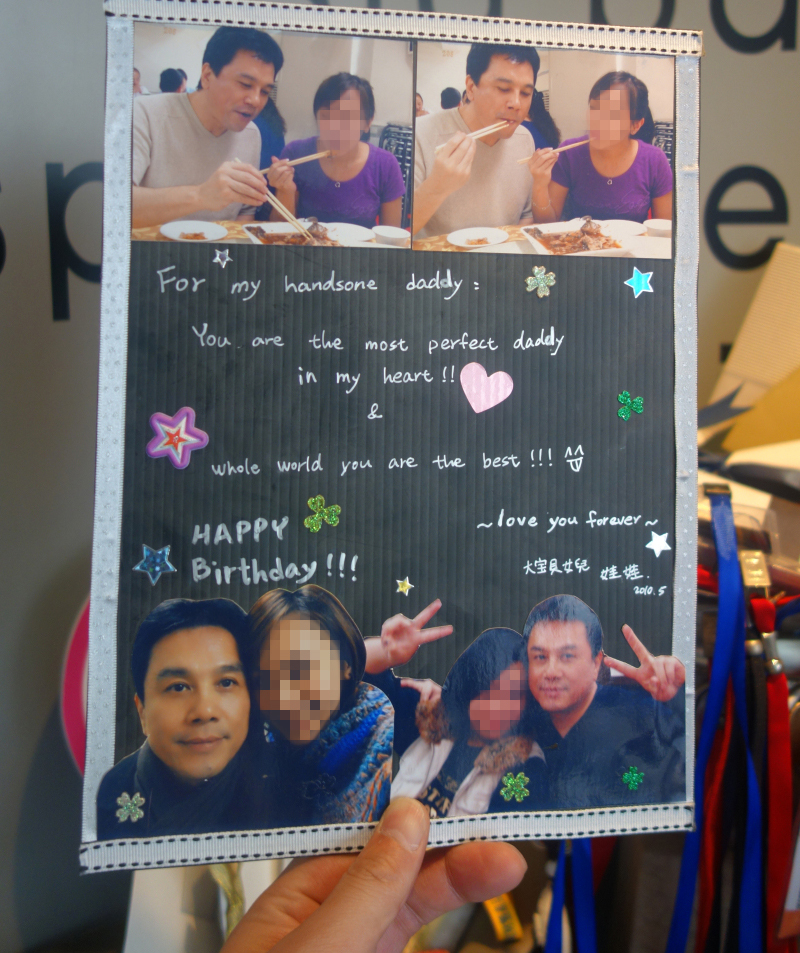 For my handsone daddy :
You are the most perfect daddy
in my heart !!
&
whole world you are the best !!!
HAPPY
Birthday !!!
~love you forever~
大宝貝女兒 娃娃.
2010.5